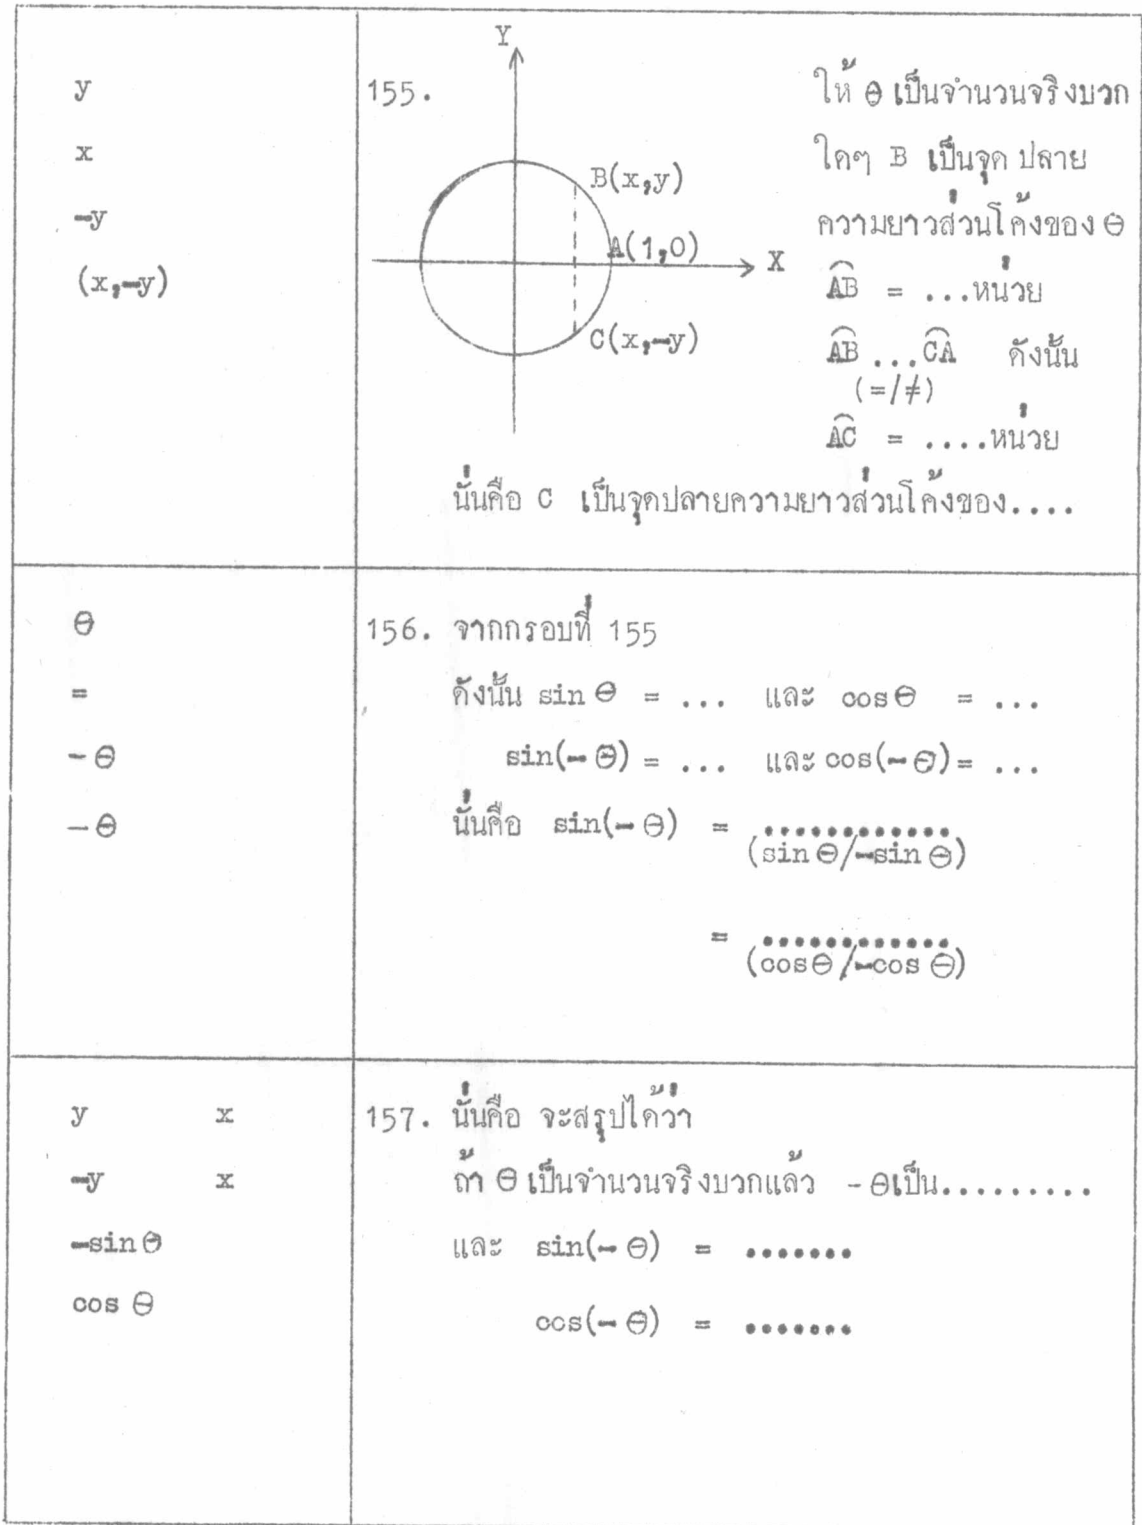 y
x
-y
(x,-y)
155.
Y
B(x,y)
A(1,0)
X
C(x,-y)
ให้ θ เป็นจำนวนจริงบวก
ใดๆ B เป็นจุด ปลาย
ความยาวส่วนโค้งของ θ
AB = ...หน่วย
AB ... CA ดังนั้น
(=/≠)
AC = ....หน่วย
นั่นคือ C เป็นจุดปลายความยาวส่วนโค้งของ....
θ
=
-θ
-θ
156. จากกรอบที่ 155
ดังนั้น sin θ = ... และ cos θ = ...
sin(-θ) = ... และ cos(-θ) = ...
นั่นคือ sin(-θ) = ............
(sin θ/-sin θ)
= ............
(cos θ/-cos θ)
y x
-y x
-sin θ
cos θ
157. นั่นคือ จะสรุปได้ว่า
ถ้า θ เป็นจำนวนจริงบวกแล้ว -θ เป็น.........
และ sin(-θ) = .......
cos(-θ) = .......